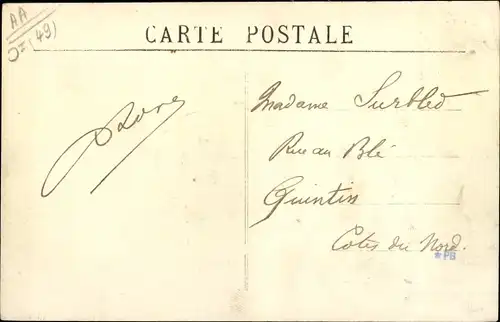 AA
(49)
CARTE POSTALE
Madame Surbled
Rue au Blé
Quintin
Cotes du Nord.
*PB